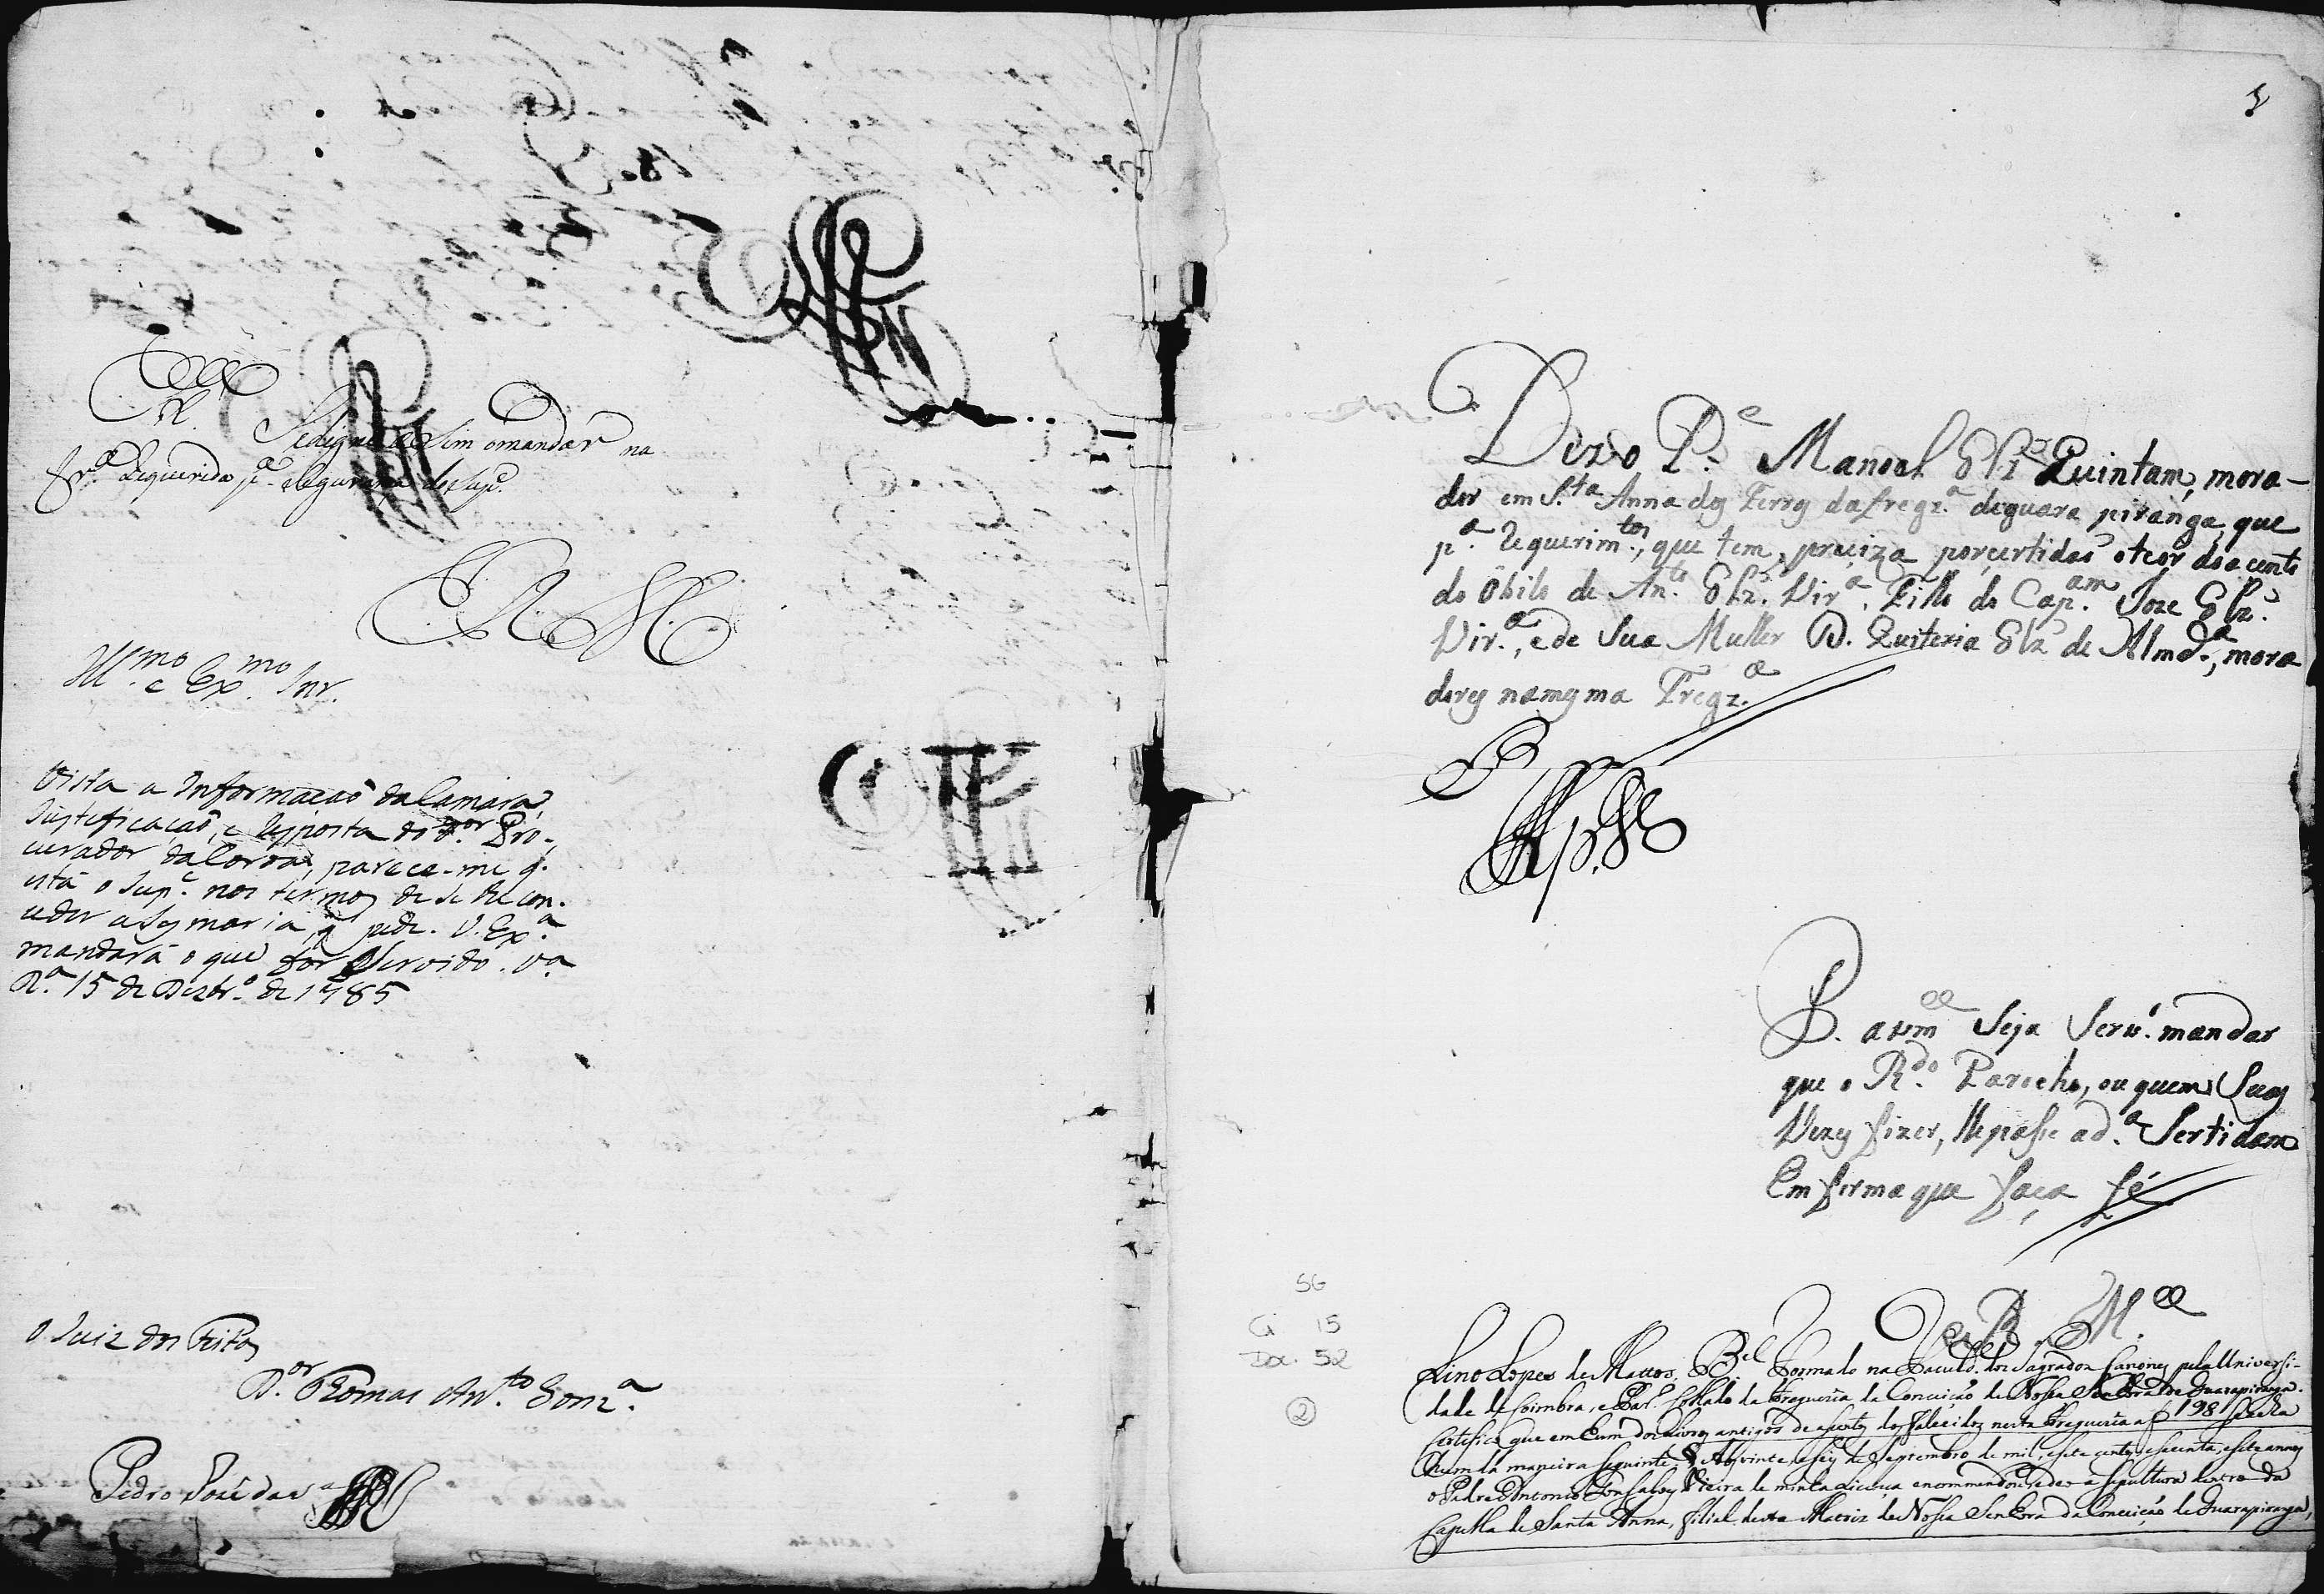 P.
Sedigne asim omandar na
fr.ª Requerida p.ª Segurança do Sup.e
E. R. M.
Ill.mo e Ex.mo Snr.
Vista a Informacaõ da Camara,
Justificacaõ, e Resposta do D.or Pro-
curador da Coroa, parece-me q.
está o Sup.e nos termos de se lhe con-
ceder a Sesmaria, q̃ pede. V. Ex.ª
mandará o que for servido. V.ª
R.ª 15 de Dezbr.º de 1785
O Juiz dos Feitos
D.or Thomas Ant.to Gonz.ª
Pedro José da
Diz o P.e Manoel Glz Quintam, mora-
dor em S.ta Anna dos Ferros da Fregz.ª de guara piranga, que
p.ª Requerim.tos, que tem, preciza por certidaõ o teor do acento
do Obito de An.to Glz.' Vir.ª, Filho do Cap.am Joze Glz.'
Vir.ª, e de Sua Mulher D. Quiteria Glz' de Almd.ª, mora
dores na mesma Fregz.ª
P. a vm.ce Seja Serv.º mandar
que o R.do Parocho, ou quem Suas
Vezes fizer, lhe passe a d.ª Sertidam
Em forma que faça fé
E R M.ce
SG
Cx 15
Doc. 52
2
Lino Lopes de Mattos, B.el Formado na Faculd.e dos Sagrados Canones pela Universi-
dade de Coimbra, e Par.º Collado da Freguezia da Conceição de Nossa Senhora de Guarapiranga.
Certifico que em hum dos Livros antigos de asentos dos falecidos nesta Freguezia a f 198 se acha
hum da maneira seguinte; Aos vinte e seis de Septembro de mil, e sete centos, e secenta, e sete annos
o Padre Antonio Gonsalves Vieira de minha licença encommendou, e deo a sepultura dentro da
Capella de Santa Anna, filial desta Matriz de Nossa Senhora da Conceição de Guarapiranga,